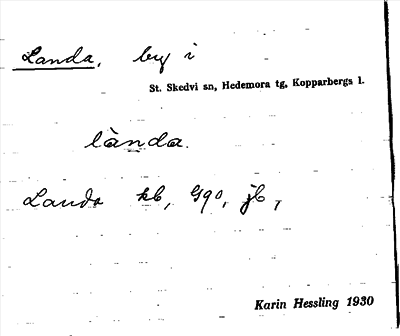 Landa, by i
St. Skedvi sn, Hedemora tg, Kopparbergs l.
lànda.
Landa kb, G90, jb,
Karin Hessling 1930